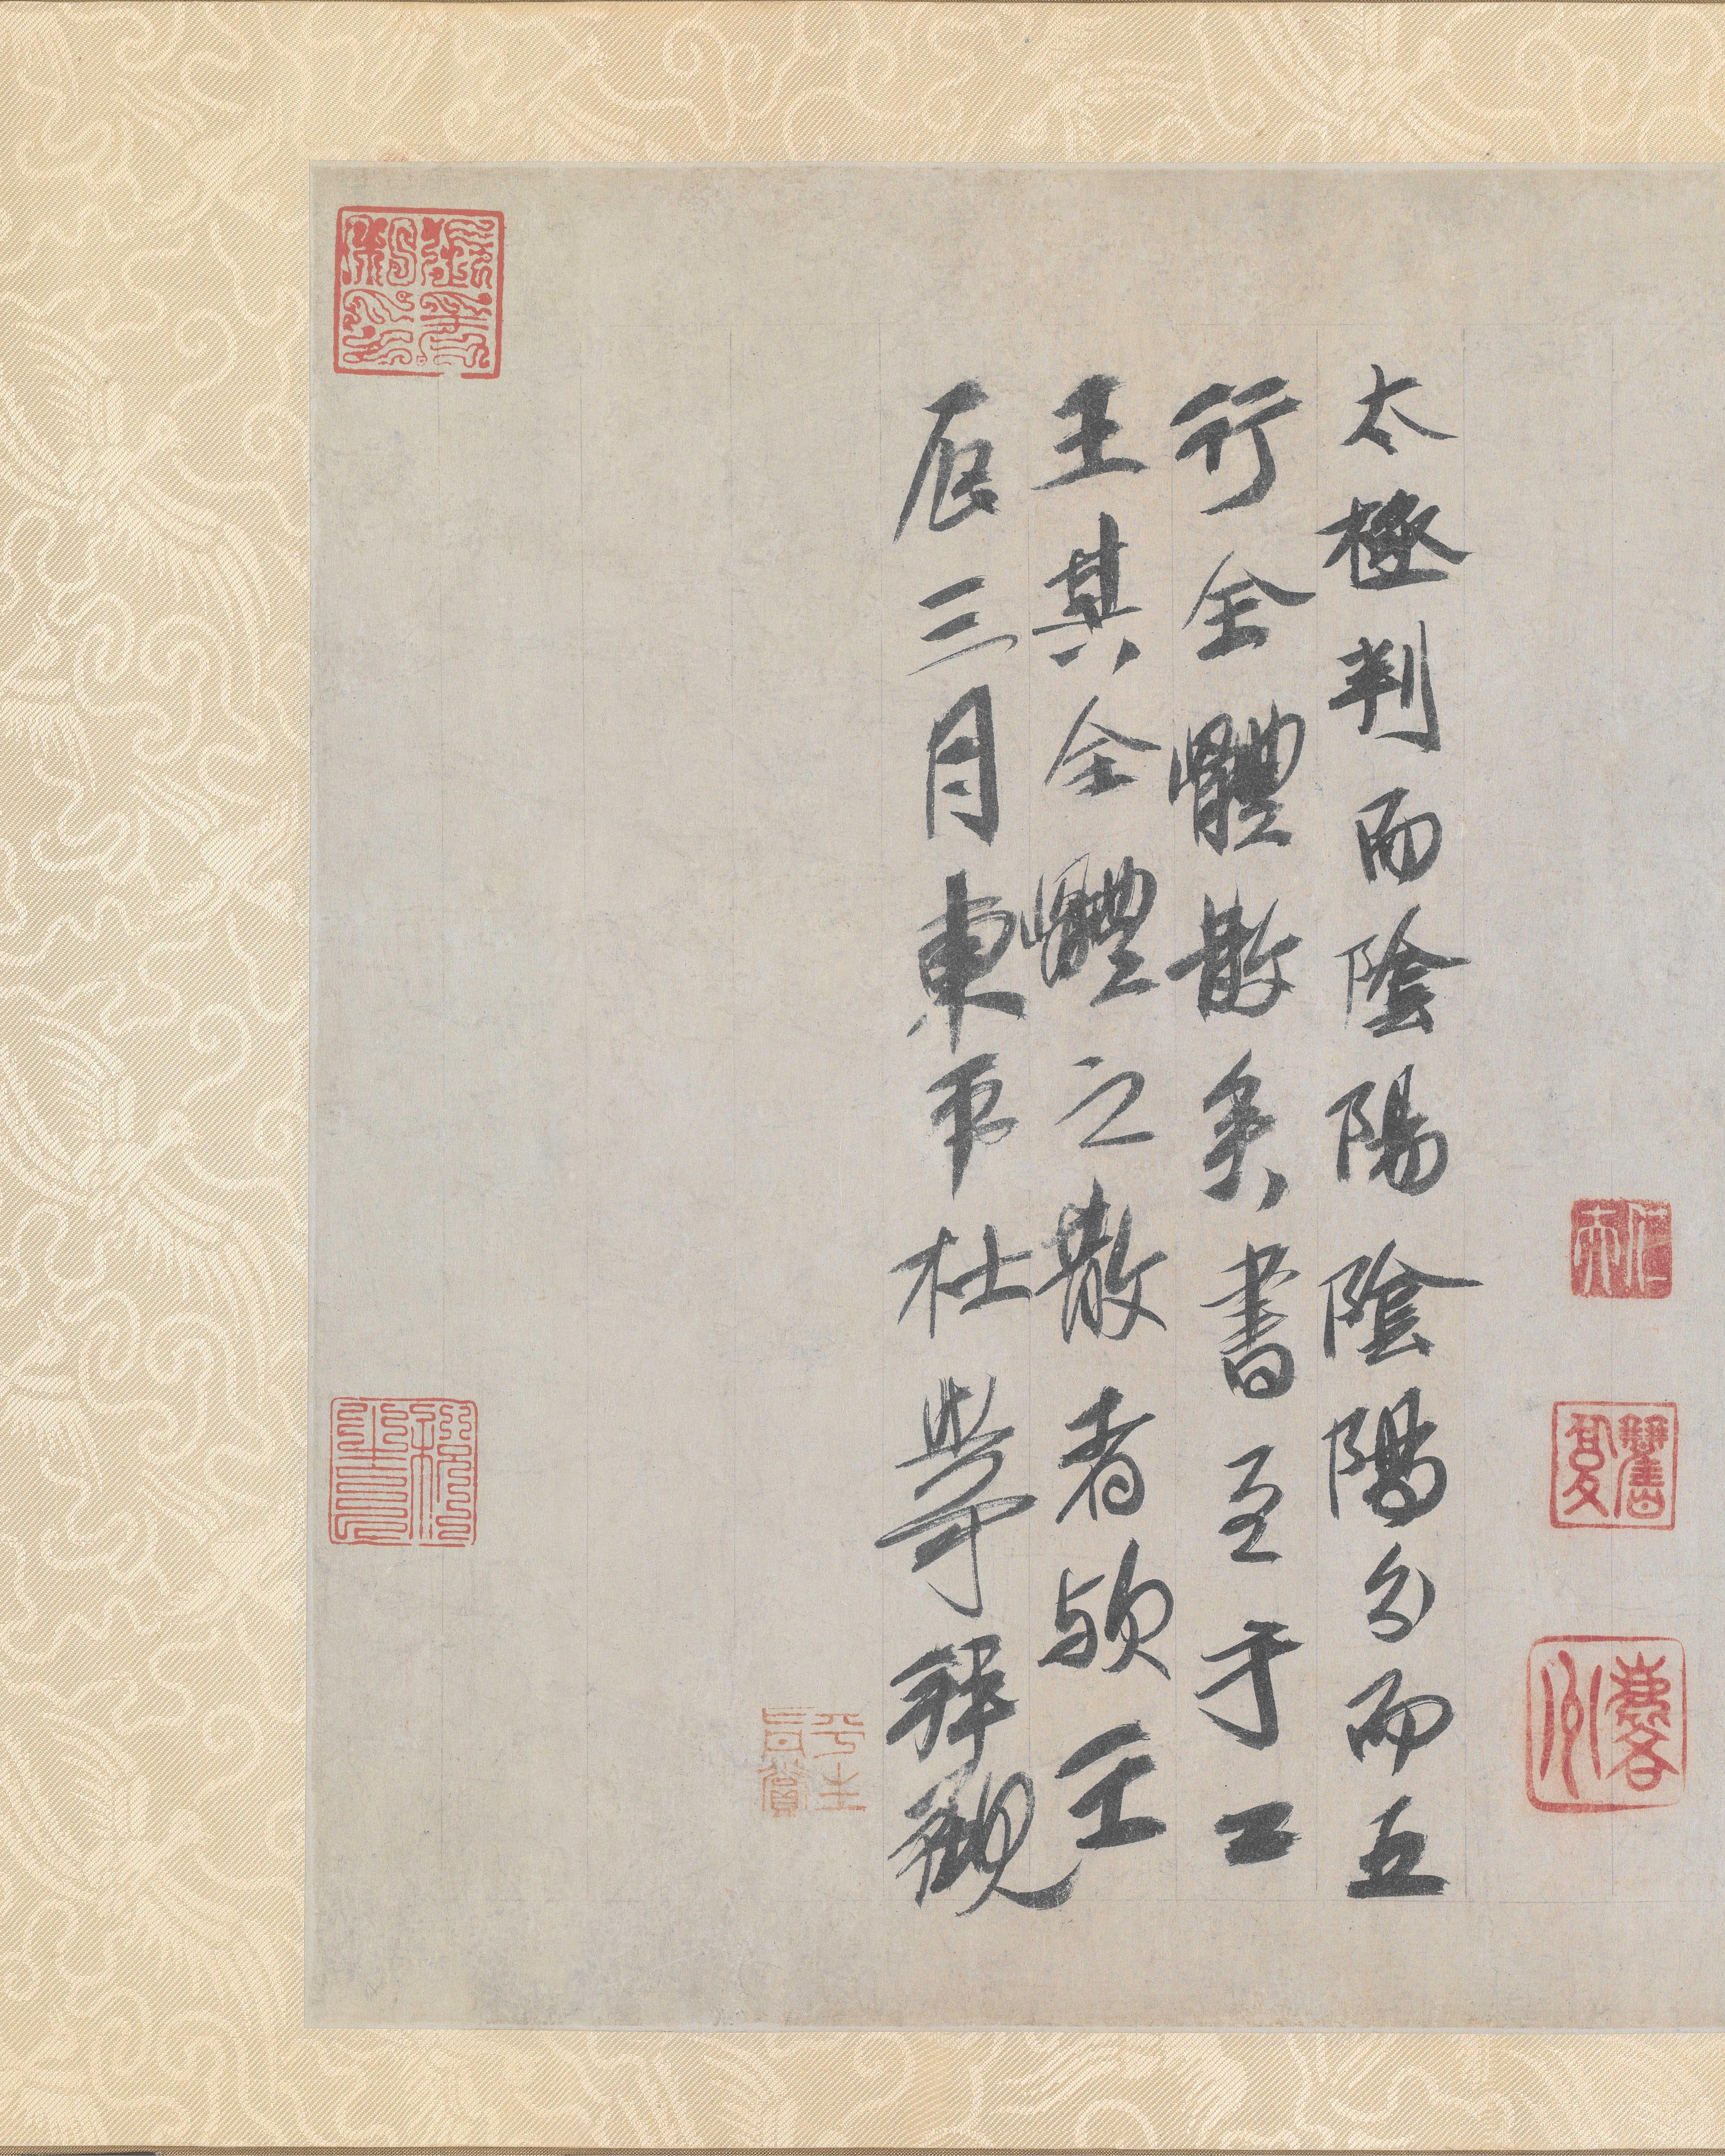 太極判而陰陽陰陽分而五
行全體散矣書至于二
王其全體之散者歟壬
辰三月東平杜䓁拜觀
平生
真賞